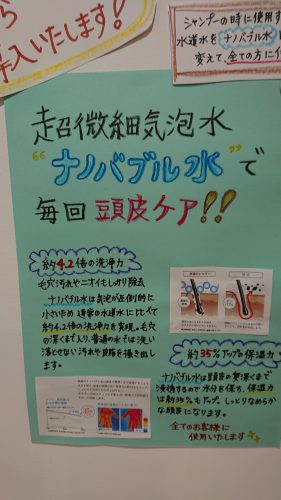 から
導入いたします!
シャンプーの時に使用す
水道水をナノバブル水
変えて、全ての方に
超微細気泡水
“ナノバブル水”で
毎回 頭皮ケア!!
約4.2倍の洗浄力
毛穴汚れやニオイもしっかり除去
ナノバブル水は気泡が圧倒的に
小さいため 通常の水道水に比べて
約4.2倍の洗浄力を実現。毛穴
の深くまで入り、普通の水では洗い
落とせない汚れや皮脂を掻き出し
ます。
約35%アップの保温力
ナノバブル水は頭皮の奥深くまで
浸透するので水分を保ち、保温力
は約35%もアップ。しっとりなめらか
な頭皮になります。
全てのお客様に
使用いたします